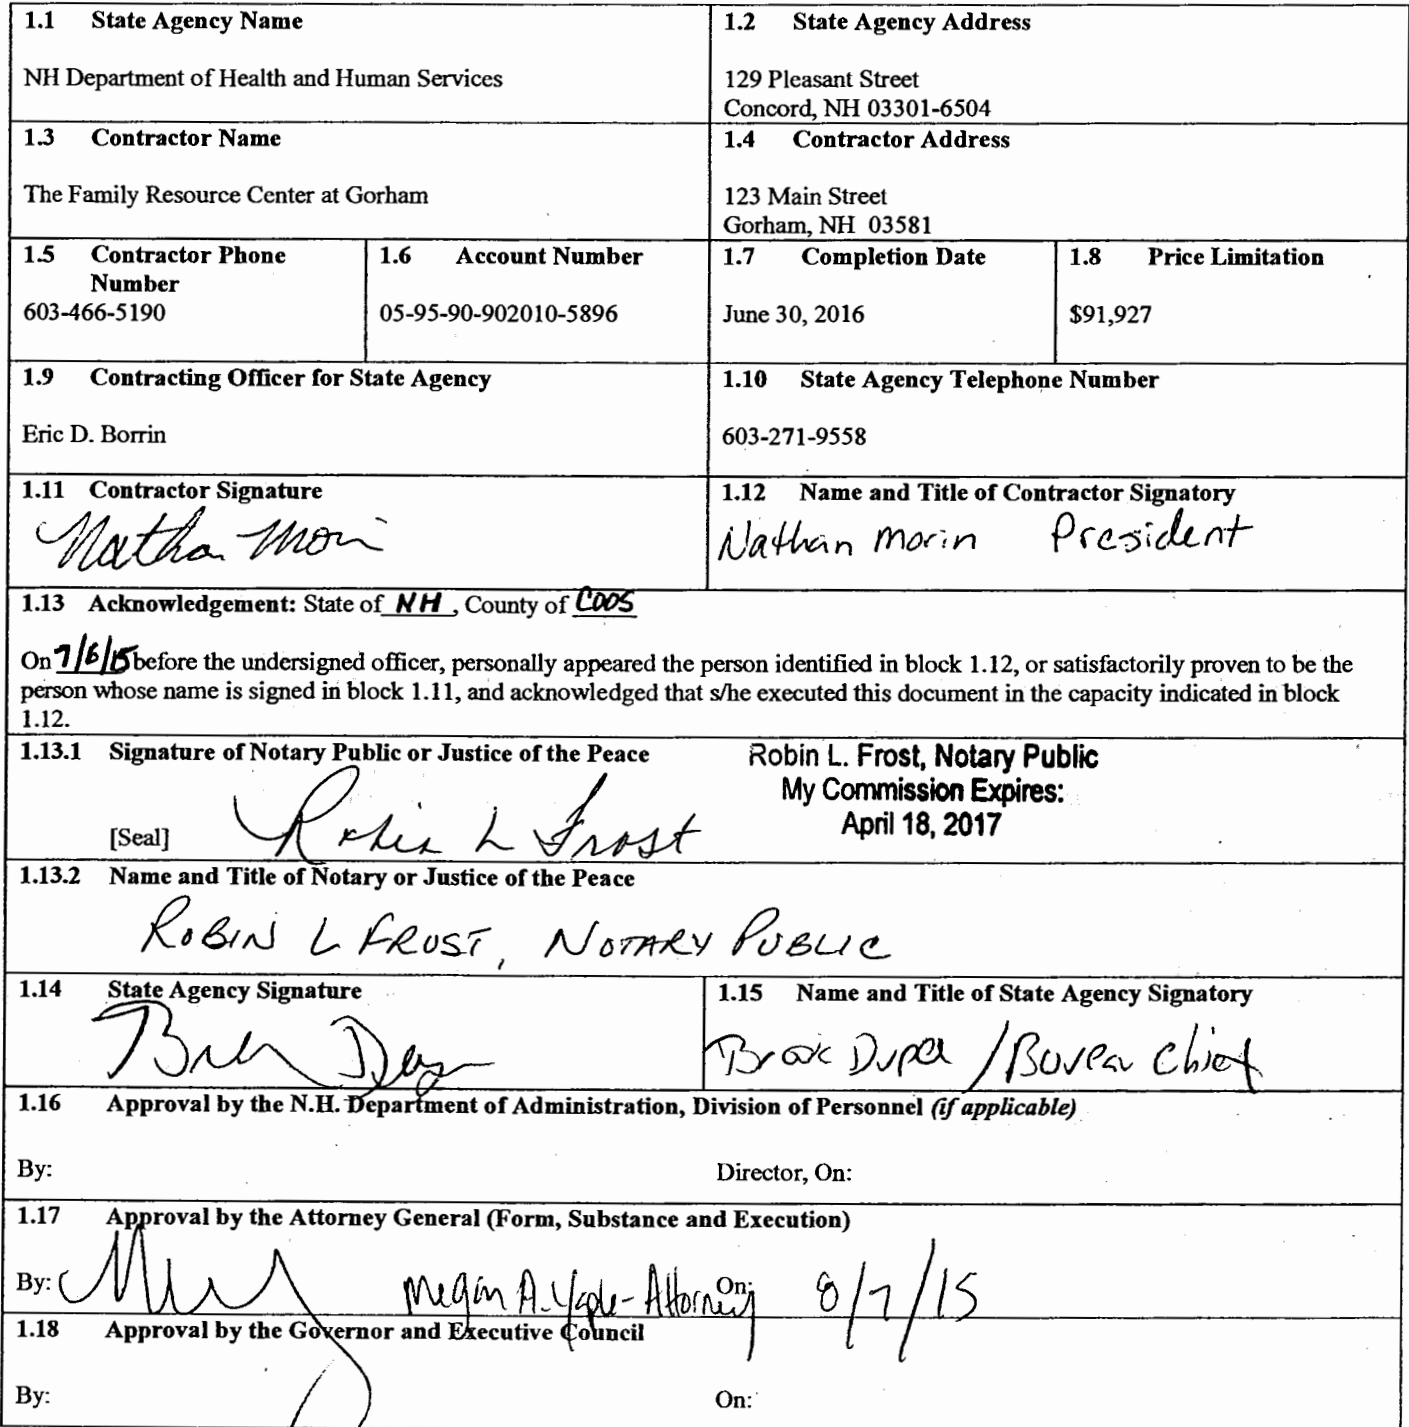 1.1 State Agency Name
NH Department of Health and Human Services
1.2 State Agency Address
129 Pleasant Street
Concord, NH 03301-6504
1.3 Contractor Name
The Family Resource Center at Gorham
1.4 Contractor Address
123 Main Street
Gorham, NH 03581
1.5 Contractor Phone
Number
603-466-5190
1.6 Account Number
05-95-90-902010-5896
1.7 Completion Date
June 30, 2016
1.8 Price Limitation
$91,927
1.9 Contracting Officer for State Agency
Eric D. Borrin
1.10 State Agency Telephone Number
603-271-9558
1.11 Contractor Signature
Nathan Morin
1.12 Name and Title of Contractor Signatory
Nathan Morin President
1.13 Acknowledgement: State of NH, County of COOS
On 7/6/15 before the undersigned officer, personally appeared the person identified in block 1.12, or satisfactorily proven to be the
person whose name is signed in block 1.11, and acknowledged that s/he executed this document in the capacity indicated in block
1.12.
1.13.1 Signature of Notary Public or Justice of the Peace
Robin L. Frost, Notary Public
My Commission Expires:
April 18, 2017
[Seal] Robin L Frost
1.13.2 Name and Title of Notary or Justice of the Peace
ROBIN L FROST, NOTARY PUBLIC
1.14 State Agency Signature
1.15 Name and Title of State Agency Signatory
Brook Dupee / Bureau Chief
1.16 Approval by the N.H. Department of Administration, Division of Personnel (if applicable)
By: Director, On:
1.17 Approval by the Attorney General (Form, Substance and Execution)
By: Megan A. Yaple - Attorney On: 8/7/15
1.18 Approval by the Governor and Executive Council
By: On: